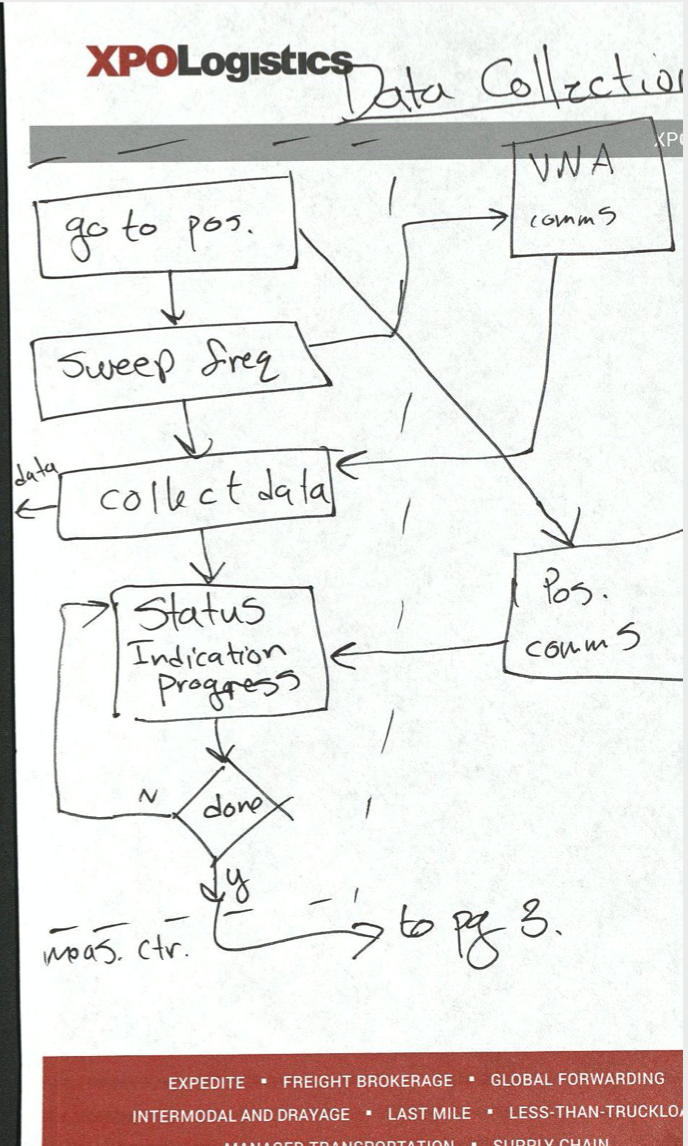 XPOLogistics
Data Collection
XPO
go to pos.
VNA
comms
sweep freq
data
collect data
Status
Indication
Progress
Pos.
comms
N
done
y
meas. ctr.
to pg 3.
EXPEDITE ▪ FREIGHT BROKERAGE ▪ GLOBAL FORWARDING
INTERMODAL AND DRAYAGE ▪ LAST MILE ▪ LESS-THAN-TRUCKLOA
MANAGED TRANSPORTATION ▪ SUPPLY CHAIN